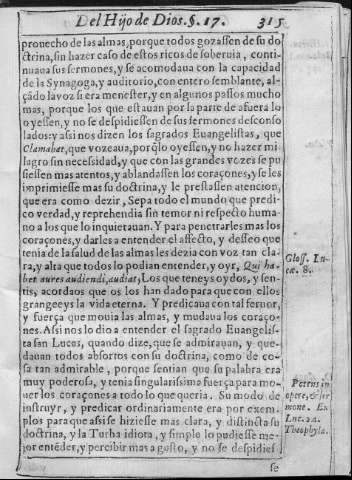 Del Hijo de Dios. §. 17. 315
pronecho de las almas, porque todos gozassen de su do
ctrina, sin hazer caso de estos ricos de soberuia, conti-
nuaua sus sermones, y se acomodaua con la capacidad
de la Synagoga, y auditorio, con entero semblante, al-
çãdo la voz si era menester, y en algunos passos mucho
mas, porque los que estauan por la parte de afuera lo
oyessen, y no se despidiessen de sus sermones desconso
lados: y assi nos dizen los sagrados Euangelistas, que
Clamabat, que vozeaua, porq̃ lo oyessen, y no hazer mi
lagro sin necessidad, y que con las grandes vozes se pu
siessen mas atentos, y ablandassen los coraçones, y se les
imprimiesse mas su doctrina, y le prestassen atencion,
que era como dezir, Sepa todo el mundo que predi-
co verdad, y reprehendia sin temor ni respecto huma-
no a los que lo inquietauan. Y para penetrarles mas los
coraçones, y darles a entender el affecto, y desseo que
tenia de la salud de las almas les dezia con voz tan cla
ra, y alta que todos lo podian entender, y oyr, Qui ha-
bet aures audiendi, audiat, Los que teneys oydos, y sen-
tis, acordaos que os los han dado para que con ellos
grangeeys la vida eterna. Y predicaua con tal feruor,
y fuerça que mouia las almas, y mudaua los coraço-
nes. Assi nos lo dio a entender el sagrado Euangelis-
ta san Lucas, quando dize, que se admirauan, y que-
dauan todos absortos con su doctrina, como de co-
sa tan admirable, porque sentian que su palabra era
muy poderosa, y tenia singularissima fuerça para mo-
uer los coraçones a todo lo que queria. Su modo de
instruyr, y predicar ordinariamente era por exem-
plos para que assi se hiziesse mas clara, y distincta su
doctrina, y la Turba idiota, y simple lo pudiesse me-
jor entẽder, y percibir mas a gusto, y no se despidies
se
Gloss. Lu-
cæ. 8.
Petrus in
opere, & ser
mone. Ex
Luc. 24.
Theophyla.